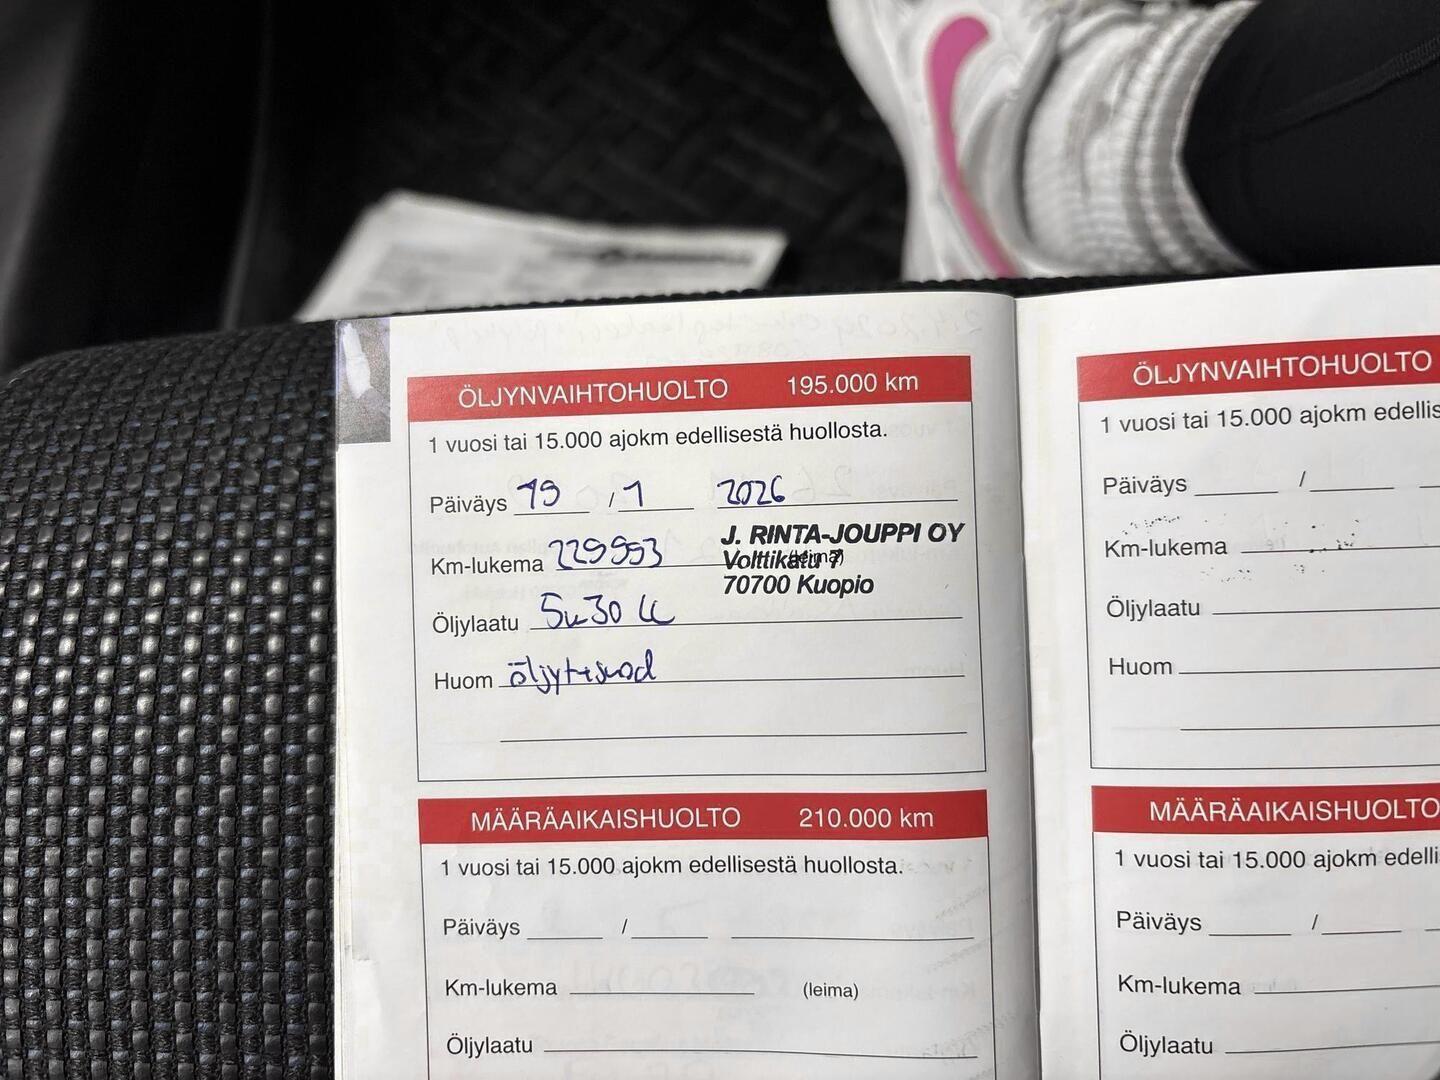 ÖLJYNVAIHTOHUOLTO 195.000 km
1 vuosi tai 15.000 ajokm edellisestä huollosta.
Päiväys 19 / 1 2026
J. RINTA-JOUPPI OY
Km-lukema 229993
Volttikatu 7
(leima)
70700 Kuopio
Öljylaatu 5w30 LL
Huom öljyt+suod
MÄÄRÄAIKAISHUOLTO 210.000 km
1 vuosi tai 15.000 ajokm edellisestä huollosta.
Päiväys /
Km-lukema (leima)
Öljylaatu
ÖLJYNVAIHTOHUOLTO
1 vuosi tai 15.000 ajokm edellis
Päiväys /
Km-lukema
Öljylaatu
Huom
MÄÄRÄAIKAISHUOLTO
1 vuosi tai 15.000 ajokm edelli
Päiväys /
Km-lukema
Öljylaatu